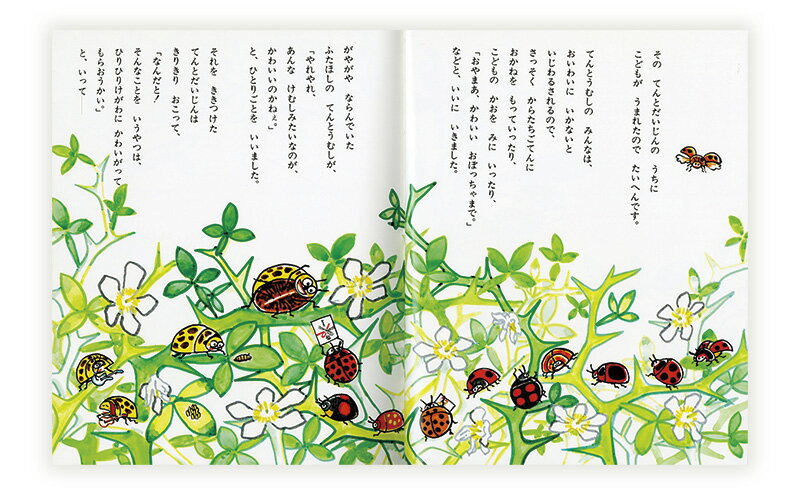 その　てんとだいじんの　うちに
こどもが　うまれたので　たいへんです。
てんとうむしの　みんなは、
おいわいに　いかないと
いじわるされるので、
さっそく　からたちごてんに
おかねを　もっていったり、
こどもの　かおを　みに　いったり、
「おやまあ、かわいい　おぼっちゃまで。」
などと、いいに　いきました。
がやがや　ならんでいた
ふたほしの　てんとうむしが、
「やれやれ、
あんな　けむしみたいなのが、
かわいいのかねぇ。」
と、ひとりごとを　いいました。
それを　ききつけた
てんとだいじんは
きりきり　おこって、
「なんだと！
そんなことを　いうやつは、
ひりひりけがわに　かわいがって
もらおうかい。」
と、いって――